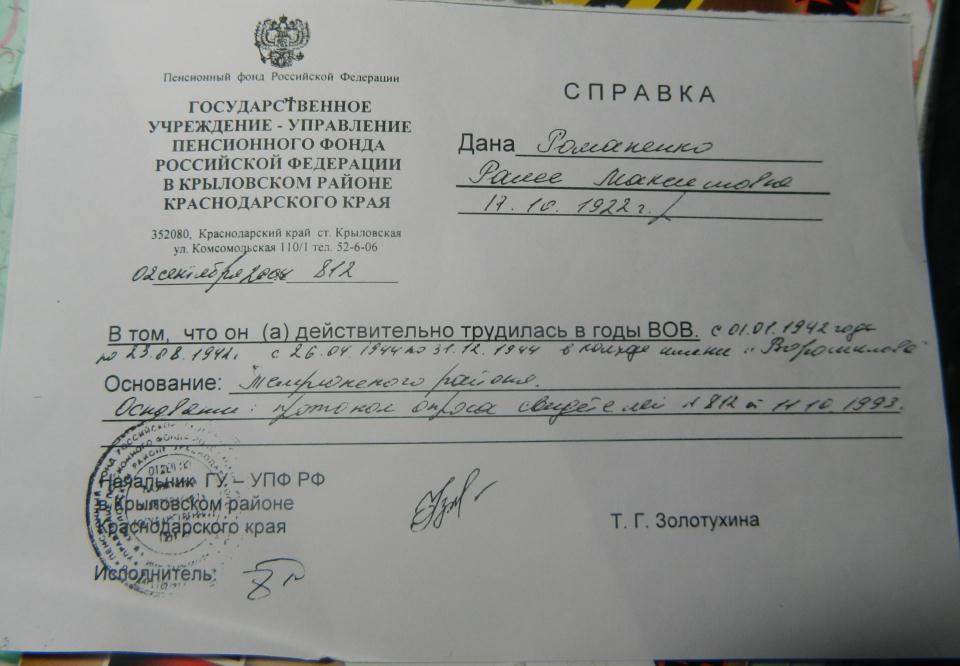 Пенсионный фонд Российской Федерации
ГОСУДАРСТВЕННОЕ
УЧРЕЖДЕНИЕ - УПРАВЛЕНИЕ
ПЕНСИОННОГО ФОНДА
РОССИЙСКОЙ ФЕДЕРАЦИИ
В КРЫЛОВСКОМ РАЙОНЕ
КРАСНОДАРСКОГО КРАЯ
352080, Краснодарский край ст. Крыловская
ул. Комсомольская 110/1 тел. 52-6-06
02 сентября 812
СПРАВКА
Дана Романенко
Раисе Максимовне
17.10.1922 г.
В том, что он (а) действительно трудилась в годы ВОВ. с 01.01.1942 года
по 23.08.1942г. с 26.04.1944 по 31.12.1944 в колхозе имени "Ворошилова"
Основание: Темрюкского района.
Основание: протокол опроса свидетелей № 812 от 11.10.1993.
Начальник ГУ – УПФ РФ
в Крыловском районе
Краснодарского края
Т. Г. Золотухина
Исполнитель: